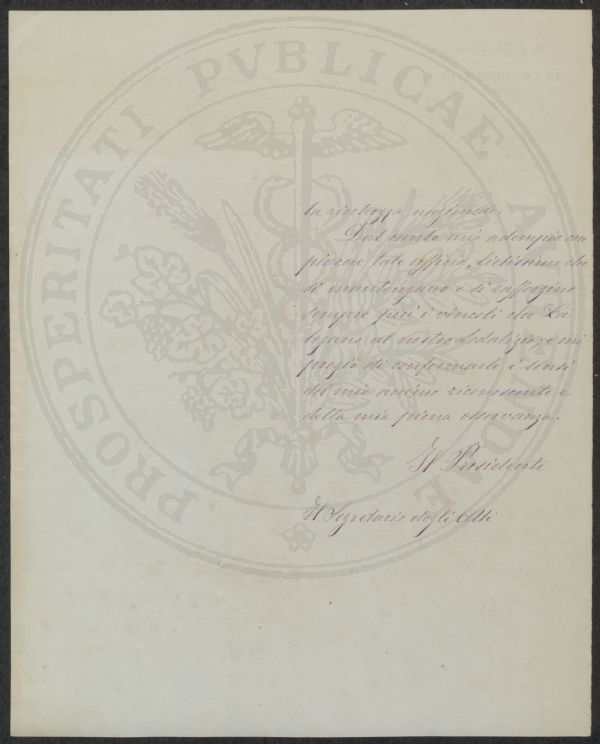 PROSPERITATI PVBLICAE AVGENDAE
la ricchezza nazionale.
Dal canto mio adempio con
piacere tale ufficio, lietissimo che
si mantengano e si rafforzino
sempre più i vincoli che La
legano al nostro Sodalizio, e mi
pregio di confermarle i sensi
del mio animo riconoscente e
della mia piena osservanza.
Il Presidente
Il Segretario degli Atti